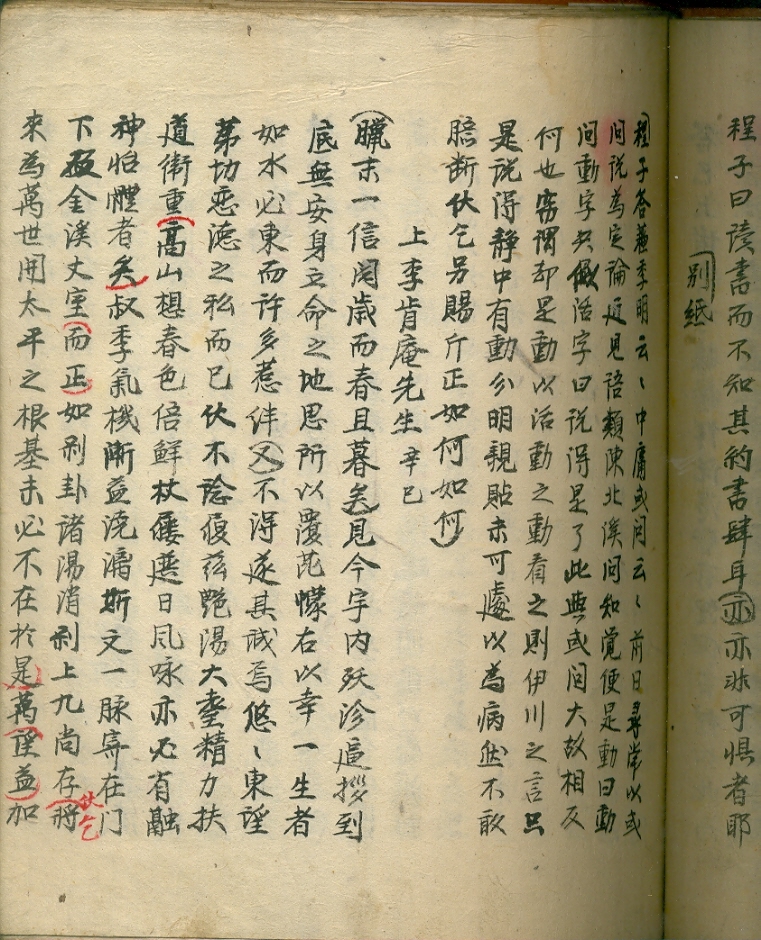 程子曰讀書而不知其約書肆耳亦亦非可懼者耶
別紙
程子答蘇季明云〻中庸或問云〻前日尋常以或
問說為定論近見語類陳北溪問知覺便是動曰動
問動字先做活字曰說得是了此與或問大故相反
何也竊謂却是動以活動之動看之則伊川之言只
是說得靜中有動分明親貼未可處以為病然不敢
臆斷伏乞另賜斤正如何如何
上李肯庵先生 辛巳
臘末一信閱歲而春且暮矣見今宇內妖沴逼拶到
底無安身立命之地思所以覆芘幪右以幸一生者
如水必東而許多惹絆又不得遂其誠焉悠〻東望
第切戀德之私而已伏不諗履玆艷陽大耋精力扶
道衛重高山想春色倍鮮杖屨逐日風咏亦必有融
神怡軆者矣叔季氣機漸益澆漓斯文一脉寄在门
下金溪丈室而正如剝卦諸陽消剝上九尚存將伏乞
來為萬世開太平之根基未必不在於是萬望益加